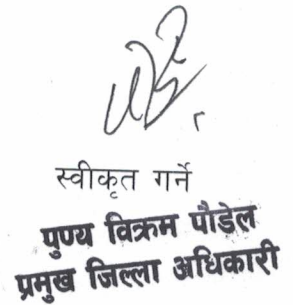 स्वीकृत गर्ने
पुण्य विक्रम पौडेल
प्रमुख जिल्ला अधिकारी